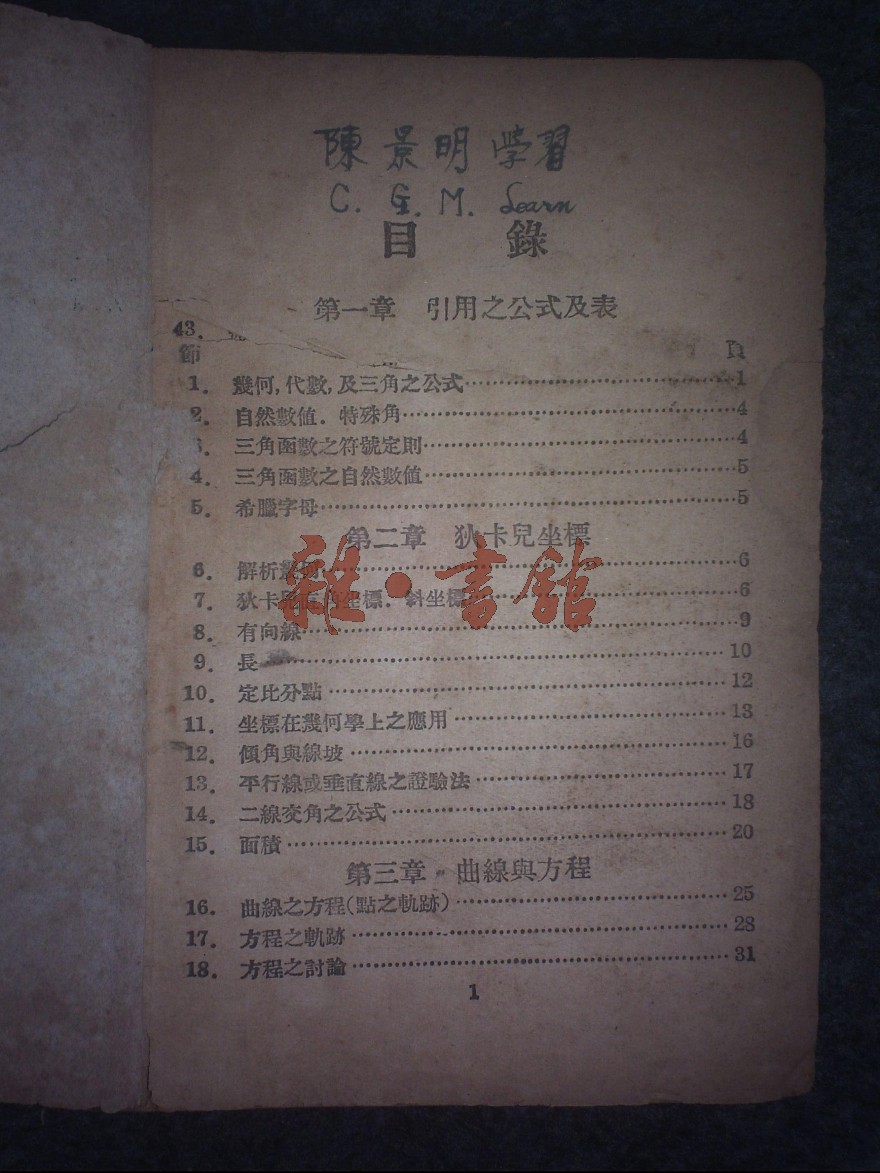 陳景明学習
C. G. M. Learn
目 錄
第一章 引用之公式及表
43.
節 頁
1. 幾何,代數,及三角之公式 1
2. 自然數值.特殊角 4
3. 三角函數之符號定則 4
4. 三角函數之自然數值 5
5. 希臘字母 5
第二章 狄卡兒坐標
6. 解析幾何 6
7. 狄卡兒直角坐標.斜坐標 6
8. 有向線 9
9. 長 10
10. 定比分點 12
11. 坐標在幾何學上之應用 13
12. 傾角與線坡 16
13. 平行線或垂直線之證驗法 17
14. 二線交角之公式 18
15. 面積 20
第三章 曲線與方程
16. 曲線之方程(點之軌跡) 25
17. 方程之軌跡 28
18. 方程之討論 31
1
雜·書館